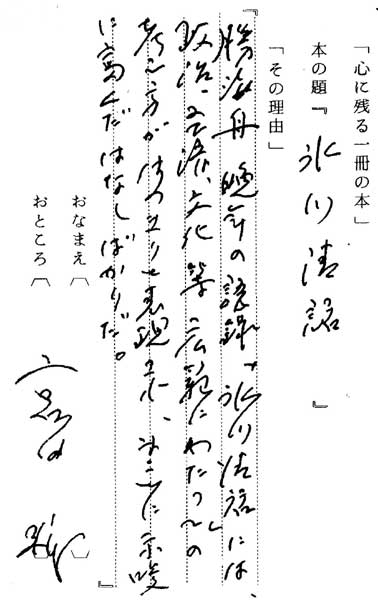 「心に残る一冊の本」
本の題『氷川清話』
「その理由」
『勝海舟晩年の語録、氷川清話には、
政治、経済、文化等広範にわたっての
考え方がはっきりと表現され、まことに示唆
に富んだはなしばかりだ。
おなまえ
おところ
』